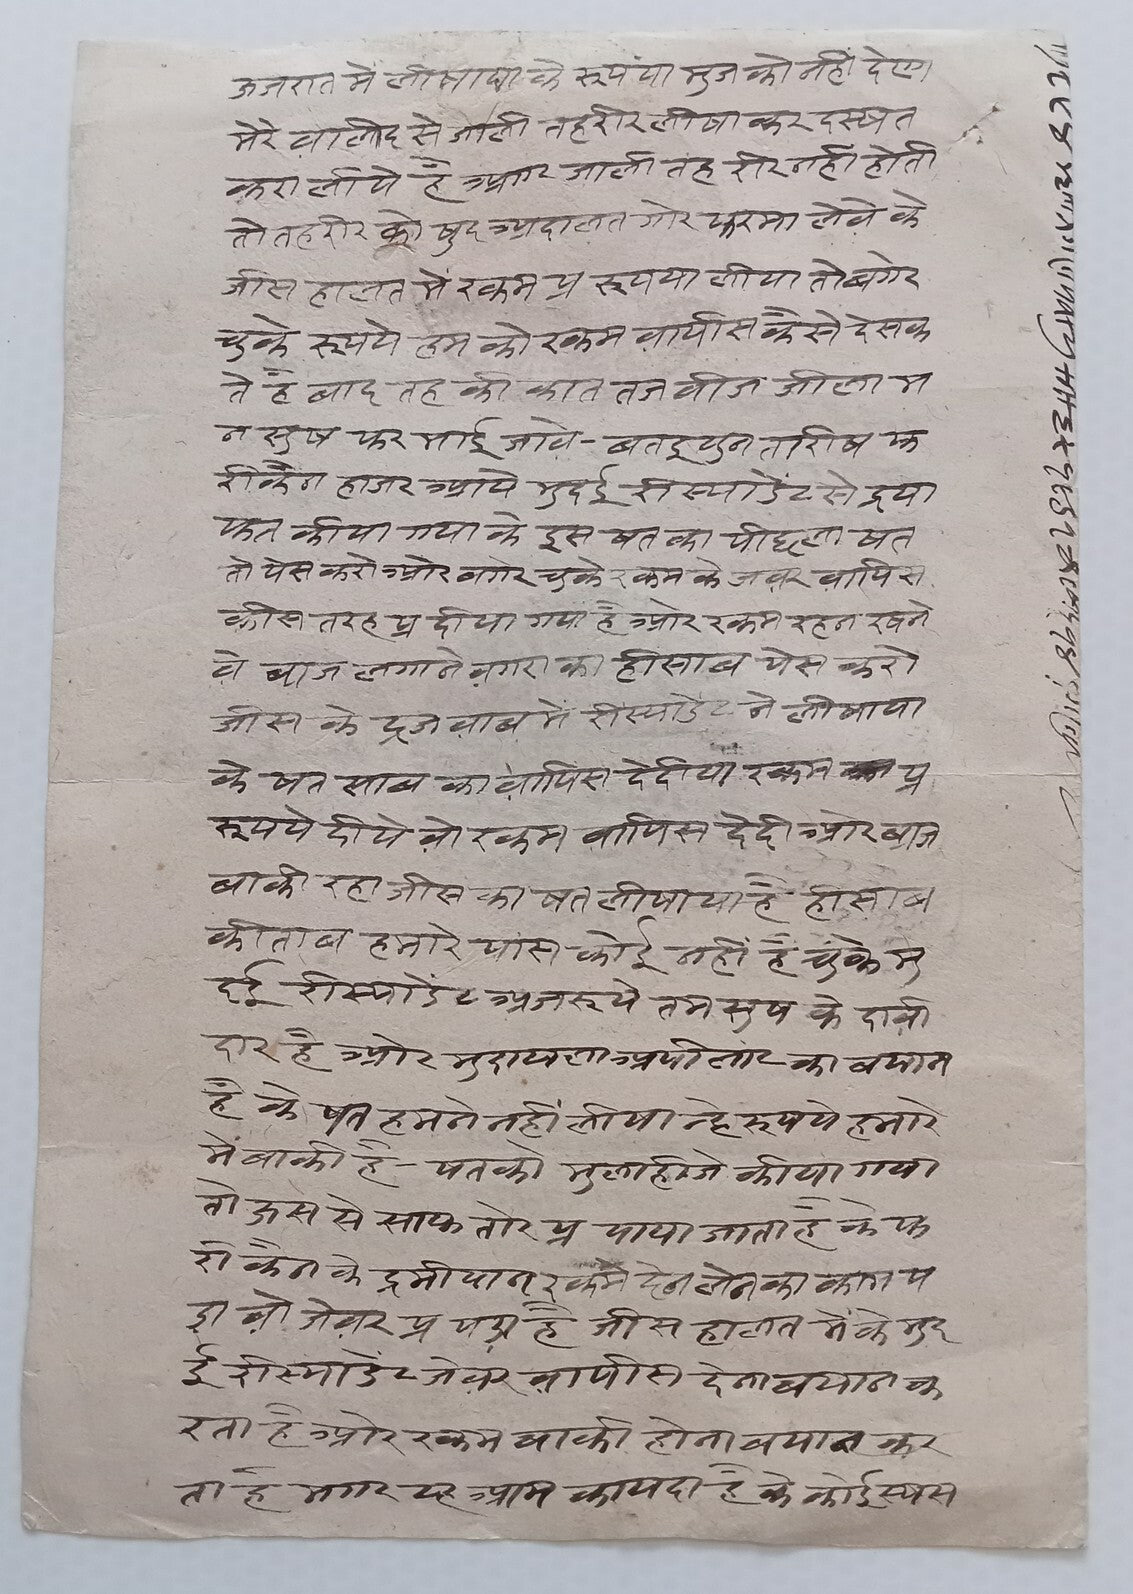 ऊजरात मे लीषाया के रूपया मुज को नही देऐ।
मेरे वालीद से जाली तहरीर लीषा कर दस्षत
करा लीये है अगर जाली तहरीर नही होती
तो तहरीर को षुद अदालत गोर फरमा लेवे के
जीस हालत मे रकम प्र रूपया लीया तो बगेर
चुके रूपये हम को रकम वापीस कैसे देसक
ते है बाद तहकीकात तजवीज जीला म
नसुष फरमाई जावे - बतइयुन तारीष फ
रीकैन हाजर आये मुदई रीस्पाडेंट से द्रया
फत कीया गया के इस षत का पीछला षत
तो पेस करो ओर बगेर चुके रकम के जेवर वापिस
कीस तरह प्र दीया गया है ओर रकम रहन रषने
वे बाज लगाने वगरा का हीसाब पेस करो
जीस के द्रजवाब मे रीस्पाडेंट ने लीषाया
के षत साब का वापिस देदीया रकम प्र
रूपये दीये वो रकम वापिस देदी ओर बाज
बाकी रहा जीस का षत लीषाया है हीसाब
कीताब हमारे पास कोई नही है चुके मु
दई रीस्पाडेंट अजरूये तमसुष के दावी
दार है ओर मुदायला अपीलार का बयान
है के षत हमने नही लीषा न्हे रूपये हमारे
में बाकी है - षत को मुलाहीजे कीया गया
तो ऊस से साफ तोर प्र पाया जाता है के फ
रीकैन के द्रमीयान रकम देन लेन का
वो जेवर प्र है जीस हालत में के मुद
ई रीस्पाडेंट जेवर वापीस देना बयान क
रता है ओर रकम बाकी होना बयान कर
ता है मगर यह आम कायदा है के कोई स्षस